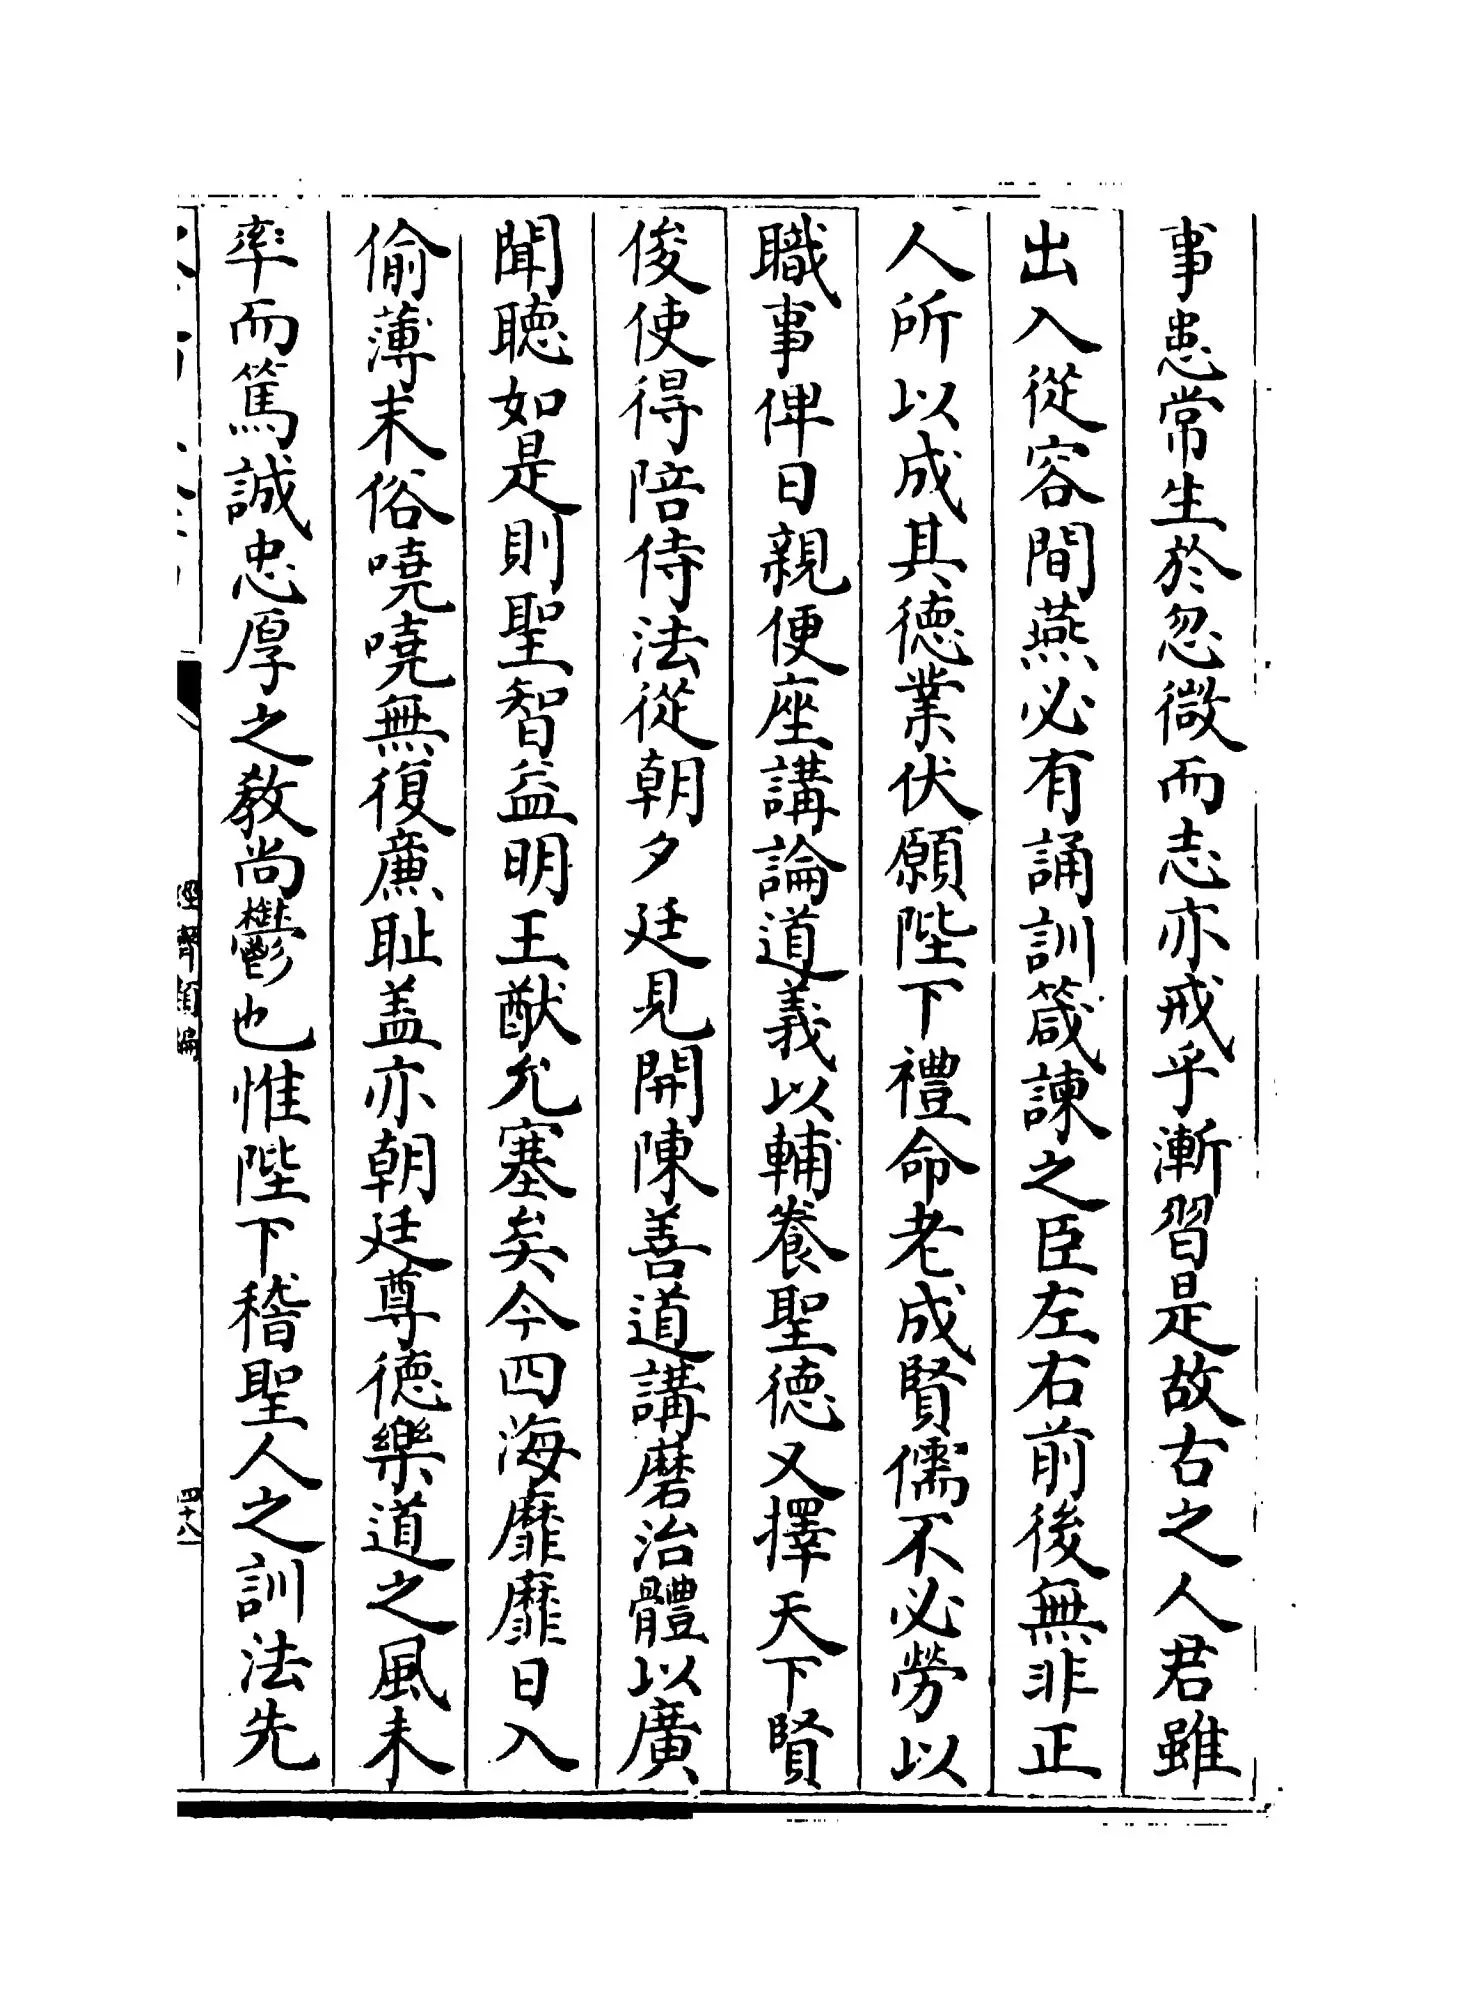 事患常生於忽微而志亦戒乎漸習是故古之人君雖
出入從容間燕必有誦訓箴諫之臣左右前後無非正
人所以成其德業伏願陛下禮命老成賢儒不必勞以
職事俾日親便座講論道義以輔養聖德又擇天下賢
俊使得陪侍法從朝夕廷見開陳善道講磨治體以廣
聞聽如是則聖智益明王猷允塞矣今四海靡靡日入
偷薄末俗嘵嘵無復廉耻盖亦朝廷尊德樂道之風未
率而篤誠忠厚之教尚鬱也惟陛下稽聖人之訓法先
經濟類編
四十八